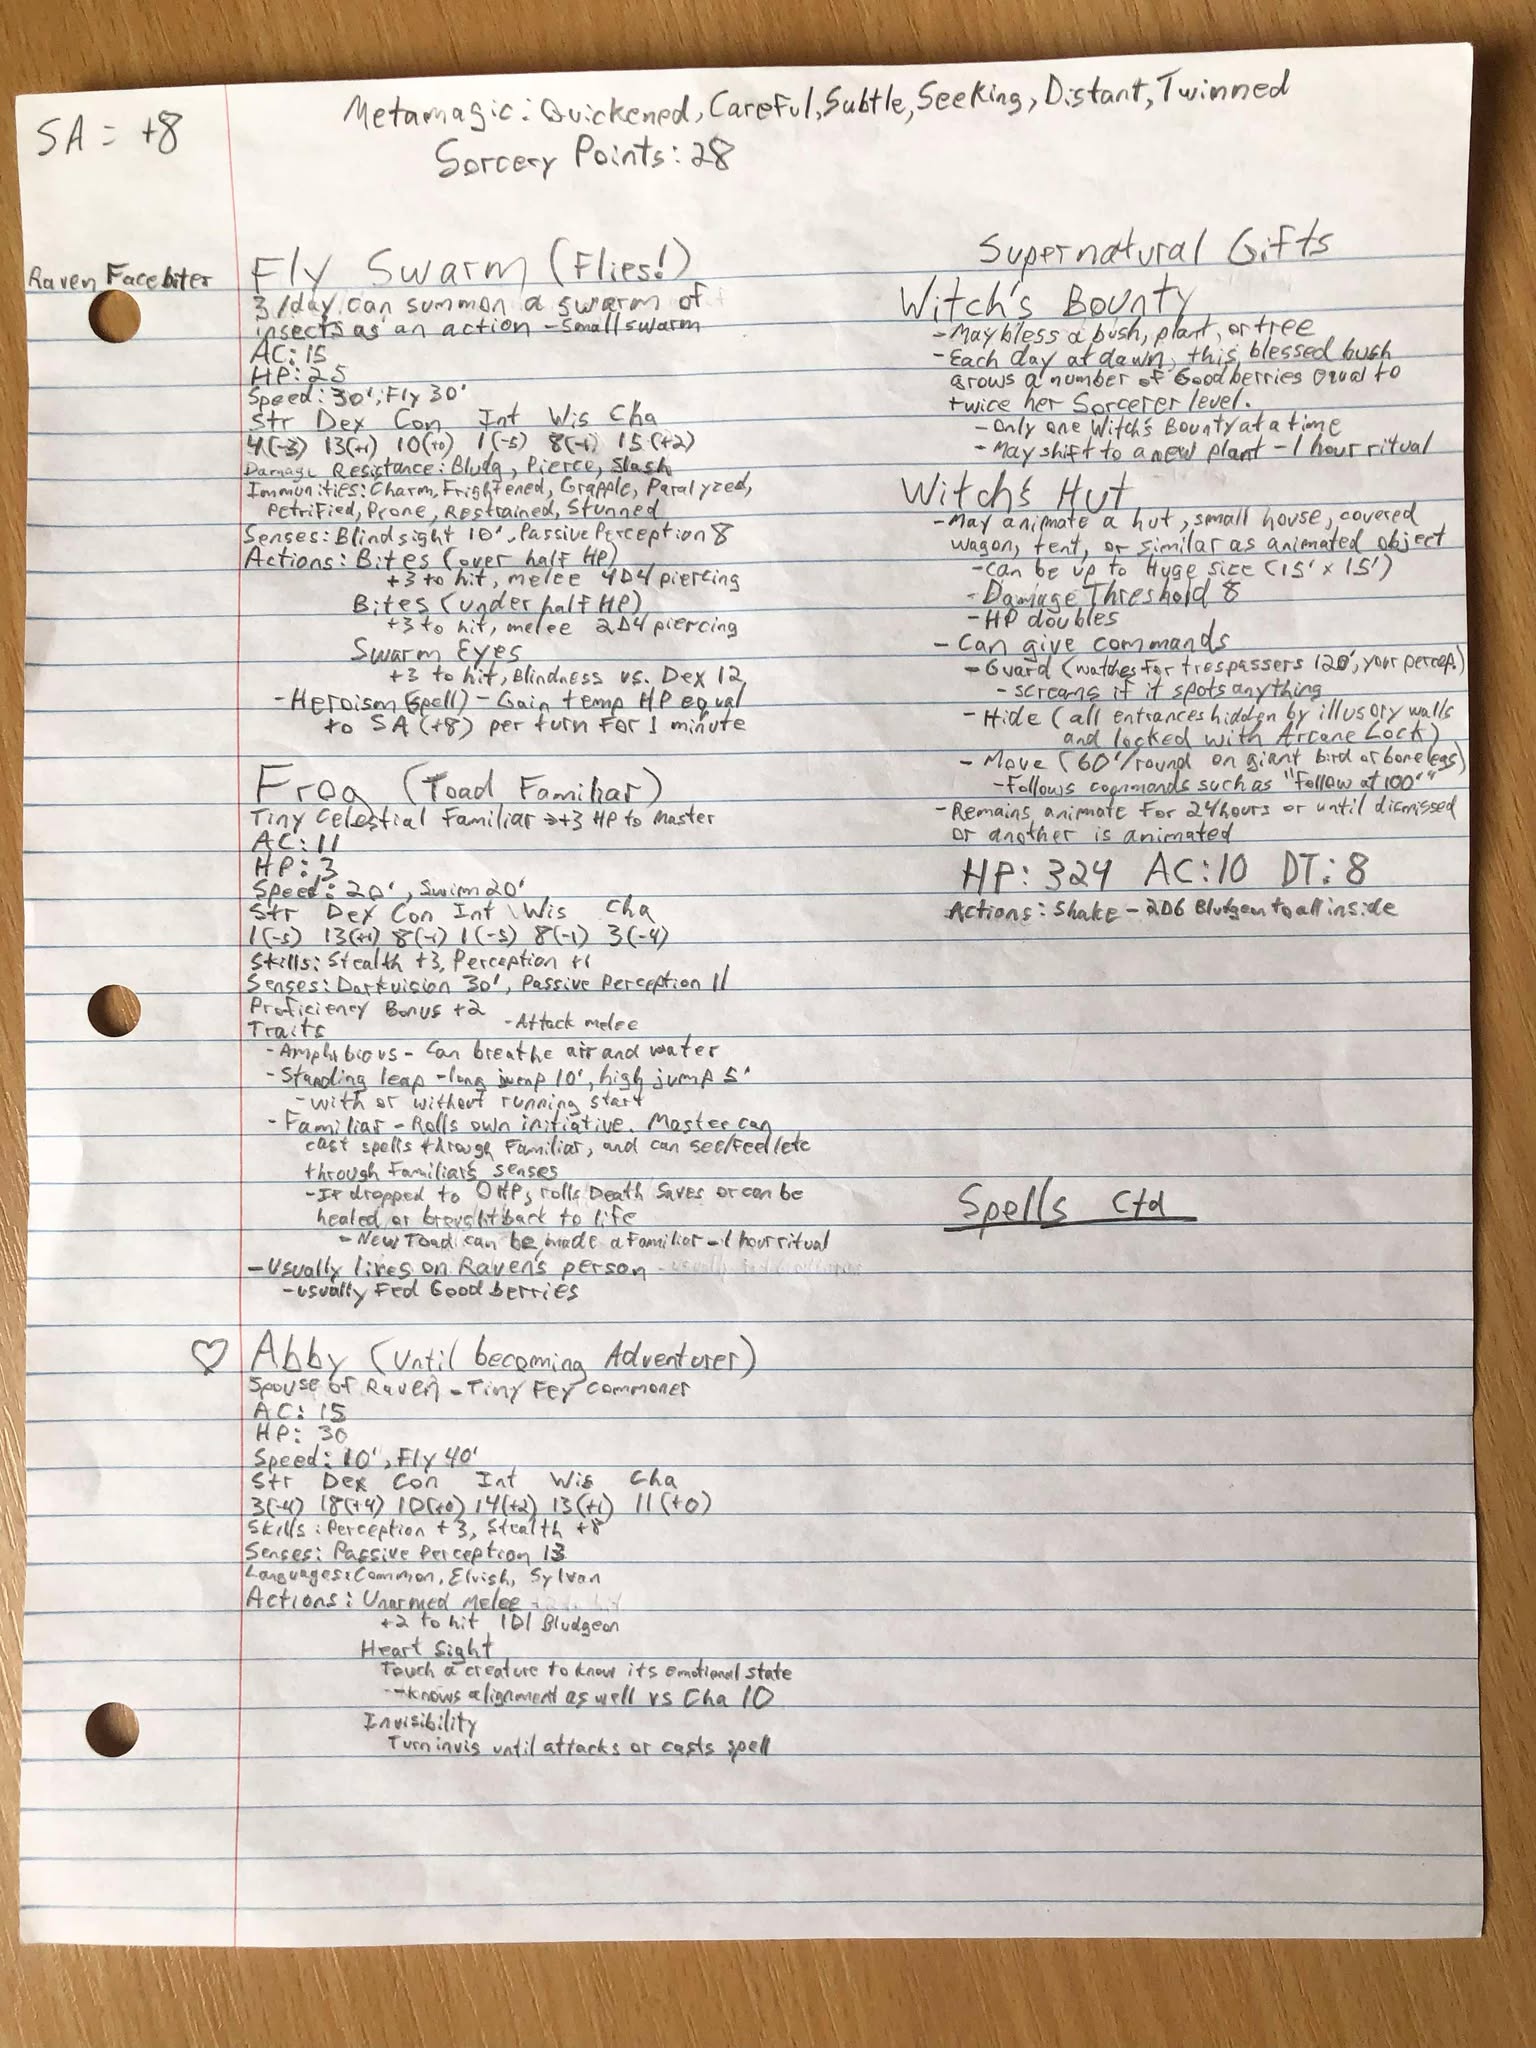 SA = +8
Metamagic: Quickened, Careful, Subtle, Seeking, Distant, Twinned
Sorcery Points: 28
Raven Facebiter
Fly Swarm (Flies!)
3/day can summon a swarm of
insects as an action - small swarm
AC: 15
HP: 25
Speed: 30', Fly 30'
Str Dex Con Int Wis Cha
4(-3) 13(+1) 10(+0) 1(-5) 8(-1) 15(+2)
Damage Resistance: Bludg, Pierce, Slash
Immunities: Charm, Frightened, Grapple, Paralyzed,
Petrified, Prone, Restrained, Stunned
Senses: Blindsight 10', Passive Perception 8
Actions: Bites (over half HP)
+3 to hit, melee 4D4 piercing
Bites (under half HP)
+3 to hit, melee 2D4 piercing
Swarm Eyes
+3 to hit, Blindness vs. Dex 12
- Heroism (spell) - Gain temp HP equal
to SA (+8) per turn for 1 minute
Frog (Toad Familiar)
Tiny Celestial Familiar → +3 HP to Master
AC: 11
HP: 3
Speed: 20', Swim 20'
Str Dex Con Int Wis Cha
1(-5) 13(+1) 8(-1) 1(-5) 8(-1) 3(-4)
Skills: Stealth +3, Perception +1
Senses: Darkvision 30', Passive Perception 11
Proficiency Bonus +2
Traits - Attack melee
- Amphibious - Can breathe air and water
- Standing leap - long jump 10', high jump 5'
- with or without running start
- Familiar - Rolls own initiative. Master can
cast spells through Familiar, and can see/feel/etc
through Familiar's senses
- If dropped to 0 HP, rolls Death Saves or can be
healed or brought back to life
- New Toad can be made a Familiar - 1 hour ritual
- Usually lives on Raven's person
- usually Fed Goodberries
♡ Abby (Until becoming Adventurer)
Spouse of Raven - Tiny Fey Commoner
AC: 15
HP: 30
Speed: 10', Fly 40'
Str Dex Con Int Wis Cha
3(-4) 18(+4) 10(+0) 14(+2) 13(+1) 11(+0)
Skills: Perception +3, Stealth +8
Senses: Passive Perception 13
Languages: Common, Elvish, Sylvan
Actions: Unarmed Melee
+2 to hit 1D1 Bludgeon
Heart Sight
Touch a creature to know its emotional state
- Knows alignment as well vs Cha 10
Invisibility
Turn invis until attacks or casts spell
Supernatural Gifts
Witch's Bounty
- May bless a bush, plant, or tree
- Each day at dawn, this blessed bush
grows a number of Goodberries equal to
twice her Sorcerer level.
- Only one Witch's Bounty at a time
- May shift to a new plant - 1 hour ritual
Witch's Hut
- May animate a hut, small house, covered
wagon, tent, or similar as animated object
- Can be up to Huge size (15' x 15')
- Damage Threshold 8
- HP doubles
- Can give commands
- Guard (watches for trespassers 120', your percep.)
- screams if it spots anything
- Hide (all entrances hidden by illusory walls
and locked with Arcane Lock)
- Move (60'/round on giant bird or bone legs)
- Follows commands such as "Follow at 100'"
- Remains animate for 24 hours or until dismissed
or another is animated
HP: 324 AC: 10 DT: 8
Actions: Shake - 2D6 Bludgeon to all inside
Spells Ctd